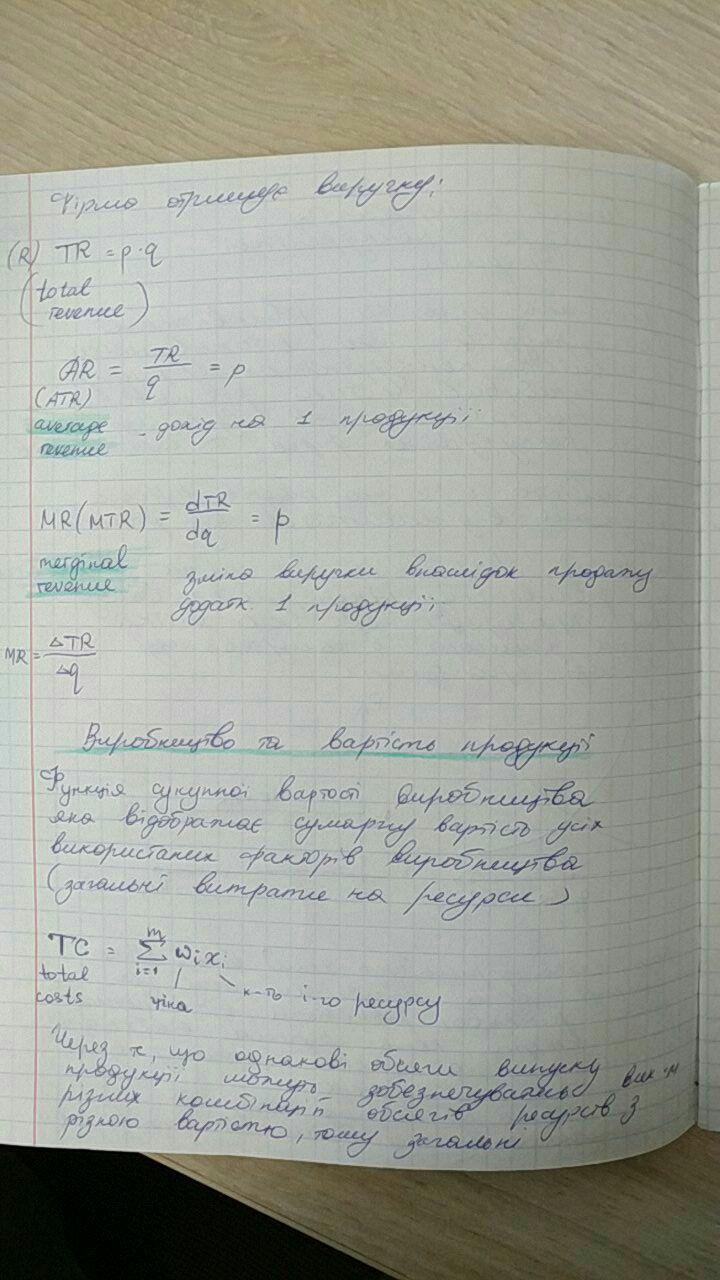 Фірма отримує виручку:
(R) TR = p·q
(total
revenue)
AR = TR/q = p
(ATR)
average - дохід на 1 продукції
revenue
MR(MTR) = dTR/dq = p
merginal зміна виручки внаслідок продажу
revenue додатк. 1 продукції
MR = ΔTR/Δq
Виробництво та вартість продукції
Функція сукупної вартості виробництва
яка відображає сумарну вартість усіх
використаних факторів виробництва
(загальні витрати на ресурси)
TC = m∑i=1 wixi
total к-ть i-го ресурсу
costs ціна
Через те, що однакові обсяги випуску
продукції можуть забезпечуватись
різних комбінацій обсягів ресурсів з
різною вартістю, тому загальні